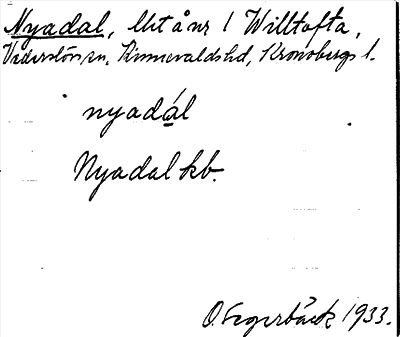 Nyadal, lht å nr 1 Willtofta,
Vederslövs sn, Kinnevalds hd, Kronobergs l.
nyadál
Nyadal kb.
O. Segerbäck 1933.